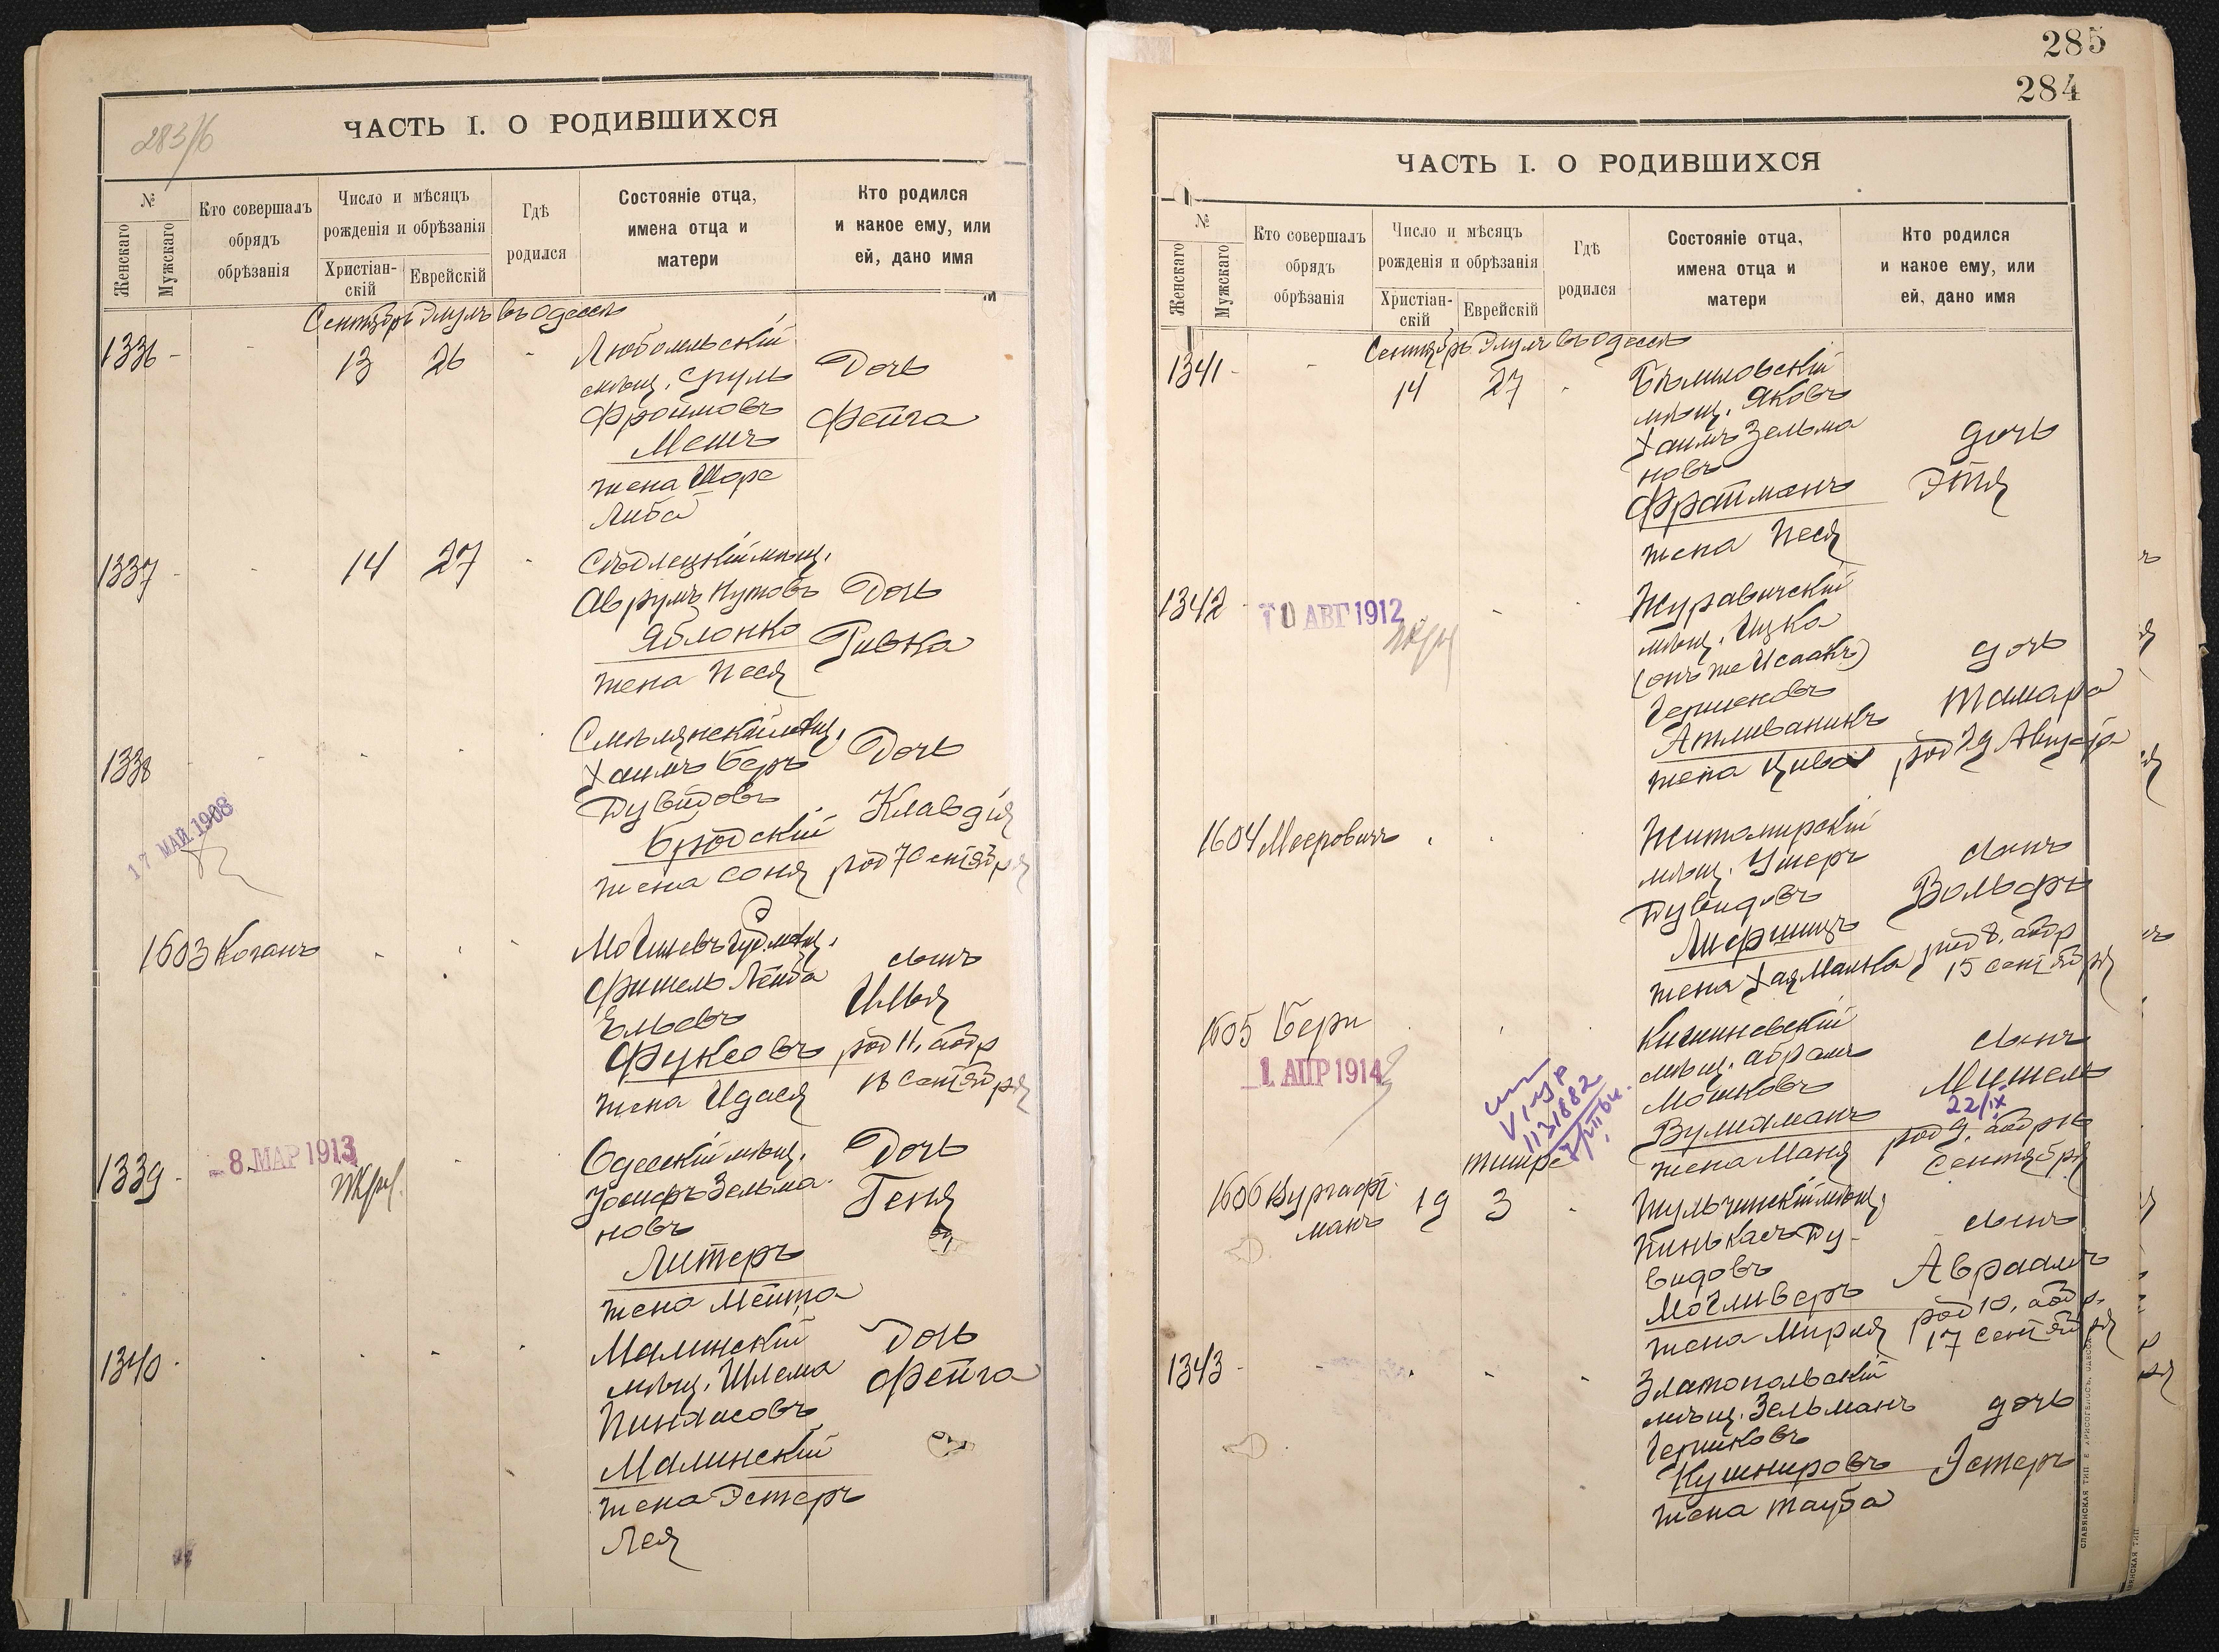 283/6
ЧАСТЬ I. О РОДИВШИХСЯ
№
Женскаго
Мужскаго
Кто совершалъ
обрядъ
обрѣзанія
Число и мѣсяцъ
рожденія и обрѣзанія
Христіан-
скій
Еврейскій
Гдѣ
родился
Состояніе отца,
имена отца и
матери
Кто родился
и какое ему, или
ей, дано имя
Сентябрь Элулъ въ Одессѣ
1336 - - 13 26 -
Любомльскій
мѣщ. Сруль
Фроимовъ
Мешъ
жена Шора
Либа
Дочь
Фейга
1337 - - 14 27 -
Сѣдлецкій мѣщ.
Аврумъ Нутовъ
Яблонко
жена Неся
Дочь
Ривка
1338
17 МАЙ 1908
Смѣлянскій мѣщ.
Хаимъ Беръ
Дувидовъ
Бродскій
жена Соня
Дочь
Клавдія
род 7 Сентября
1603 Коганъ
Фишель Лейба
Ельевъ
Фуксовъ
жена Идася
сынъ
Илья
род 11, абр
18 Сентября
1339 -
- 8. МАР 1913
Одесскій мѣщ.
Іосифъ Зельма-
новъ
Литеръ
жена Мейта
Дочь
Геня
1340 -
Малинскій
мѣщ. Шлема
Пинхасовъ
Малинскій
жена Эстеръ
Лея
Дочь
Фейга
285
284
ЧАСТЬ I. О РОДИВШИХСЯ
№
Женскаго
Мужскаго
Кто совершалъ
обрядъ
обрѣзанія
Число и мѣсяцъ
рожденія и обрѣзанія
Христіан-
скій
Еврейскій
Гдѣ
родился
Состояніе отца,
имена отца и
матери
Кто родился
и какое ему, или
ей, дано имя
Сентябрь Элулъ въ Одессѣ
1341 - - 14 27 -
мѣщ. Яковъ
Хаимъ Зельма
новъ
Фрайманъ
жена Песя
дочь
Этя
1342 -
10 АВГ 1912
Журавичскій
мѣщ. Ицка
(онъ же Исаакъ)
Гершковъ
жена Цива
дочь
Тамара
род 29 Августа
1604 Мееровичъ
Житомирскій
мѣщ. Ушеръ
Дувидовъ
Лифшицъ
жена Хая Малка
сынъ
Вольфъ
род 8, абр
15 Сентября
1605 Бери
1. АПР 1914
113/882
Кишиневскій
мѣщ. Абрамъ
Мошковъ
жена Маня
сынъ
Мишель
22/IX
род 9, абръ
Сентября
Тишре
1606 Вургафт-
манъ
19 3 -
Тульчинскій мѣщ.
Пинькасъ Ду-
видовъ
Могливеръ
жена Мирля
сынъ
Авраамъ
род 10, абр.
17 Сентября
1343 -
Златопольскій
мѣщ. Зельманъ
Гершковъ
Кушнировъ
жена Тауба
дочь
Эстеръ